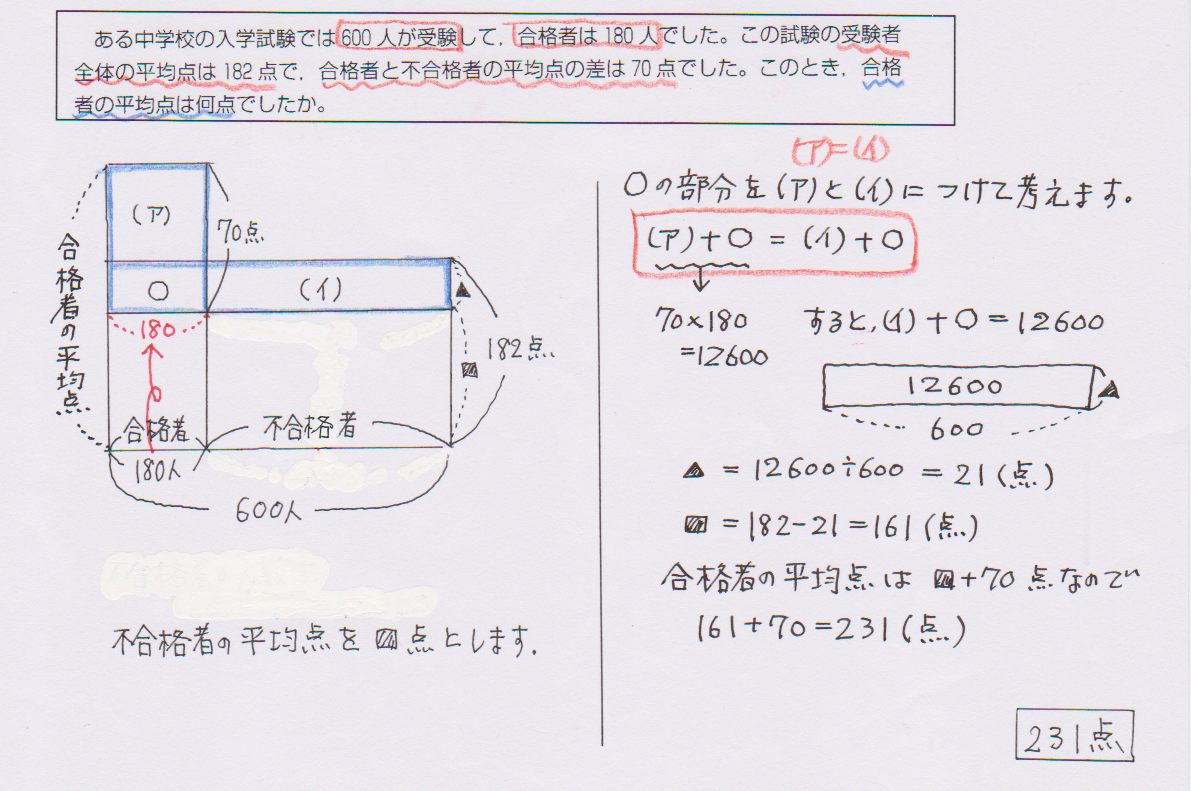 ある中学校の入学試験では600人が受験して，合格者は180人でした。この試験の受験者
全体の平均点は182点で，合格者と不合格者の平均点の差は70点でした。このとき，合格
者の平均点は何点でしたか。
(ア)
70点
○
(イ)
▲
合格者の平均点
180
182点
▨
合格者
不合格者
180人
600人
不合格者の平均点を▨点とします.
(ア)=(イ)
○の部分を(ア)と(イ)につけて考えます。
(ア)+○ = (イ)+○
70×180
=12600
すると,(イ)+○=12600
12600
▲
600
▲ = 12600÷600 = 21(点)
▨ = 182-21=161(点)
合格者の平均点は ▨+70点なので
161+70=231(点)
231点